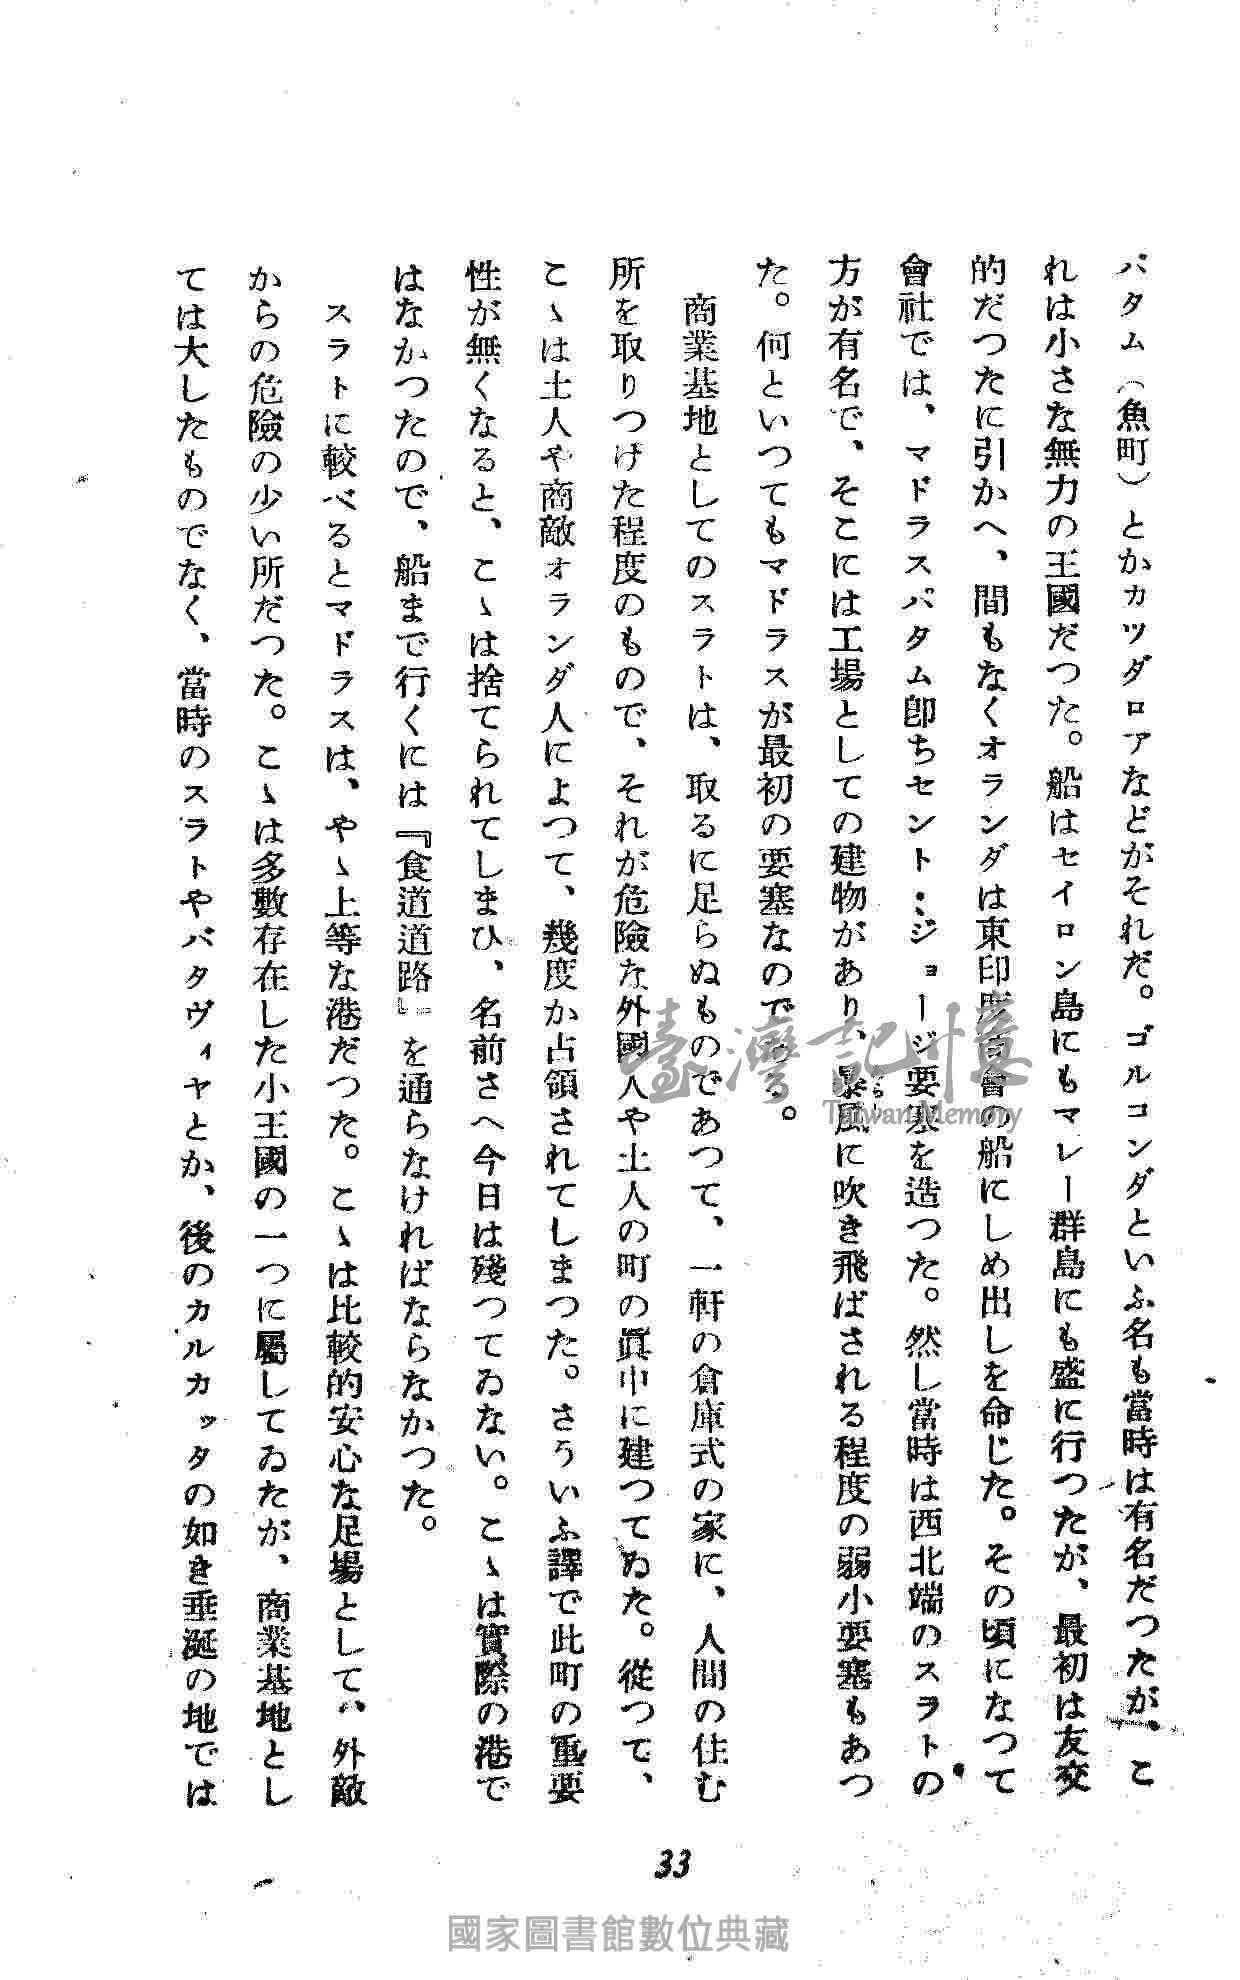 パタム（魚町）とかカツダロアなどがそれだ。ゴルコンダといふ名も當時は有名だつたが、こ
れは小さな無力の王國だつた。船はセイロン島にもマレー群島にも盛に行つたが、最初は友交
的だつたに引かへ、間もなくオランダは東印度會の船にしめ出しを命じた。その頃になつて
會社では、マドラスパタム卽ちセント・ジョージ要塞を造つた。然し當時は西北端のスラトの
方が有名で、そこには工場としての建物があり、暴風に吹き飛ばされる程度の弱小要塞もあつ
た。何といつてもマドラスが最初の要塞なのである。
商業基地としてのスラトは、取るに足らぬものであつて、一軒の倉庫式の家に、人間の住む
所を取りつけた程度のもので、それが危險な外國人や土人の町の眞中に建つてゐた。從つて、
こゝは土人や商敵オランダ人によつて、幾度か占領されてしまつた。さういふ譯で此町の重要
性が無くなると、こゝは捨てられてしまひ、名前さへ今日は殘つてゐない。こゝは實際の港で
はなかつたので、船まで行くには『食道道路』を通らなければならなかつた。
スラトに較べるとマドラスは、やゝ上等な港だつた。こゝは比較的安心な足場として、外敵
からの危險の少い所だつた。こゝは多數存在した小王國の一つに屬してゐたが、商業基地とし
ては大したものでなく、當時のスラトやバタヴィヤとか、後のカルカッタの如き垂涎の地では
33
臺灣記憶
Taiwan Memory
國家圖書館數位典藏